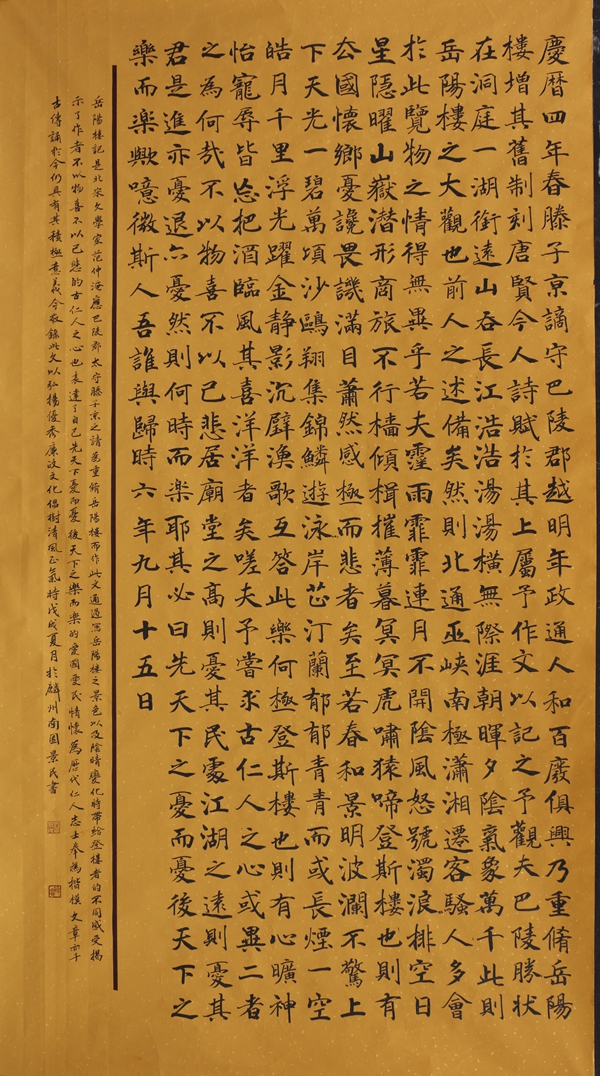 慶曆四年春滕子京謫守巴陵郡越明年政通人和百廢俱興乃重脩岳陽
樓增其舊制刻唐賢今人詩賦於其上屬予作文以記之予觀夫巴陵勝狀
在洞庭一湖銜遠山吞長江浩浩湯湯橫無際涯朝暉夕陰氣象萬千此則
岳陽樓之大觀也前人之述備矣然則北通巫峽南極瀟湘遷客騷人多會
於此覽物之情得無異乎若夫霪雨霏霏連月不開陰風怒號濁浪排空日
星隱曜山嶽潛形商旅不行檣傾楫摧薄暮冥冥虎嘯猿啼登斯樓也則有
去國懷鄉憂讒畏譏滿目蕭然感極而悲者矣至若春和景明波瀾不驚上
下天光一碧萬頃沙鷗翔集錦鱗遊泳岸芷汀蘭郁郁青青而或長煙一空
皓月千里浮光躍金静影沉璧漁歌互答此樂何極登斯樓也則有心曠神
怡寵辱皆忘把酒臨風其喜洋洋者矣嗟夫予嘗求古仁人之心或異二者
之為何哉不以物喜不以己悲居廟堂之高則憂其民處江湖之遠則憂其
君是進亦憂退亦憂然則何時而楽耶其必曰先天下之憂而憂後天下之
樂而楽歟噫微斯人吾誰與歸時六年九月十五日
岳陽樓記是北宋文學家范仲淹應巴陵郡太守滕子京之請為重脩岳陽樓而作此文通過寫岳陽樓之景色以及陰晴變化時帶給登樓者的不同感受揭
示了作者不以物喜不以己悲的古仁人之心也表達了自己先天下憂而憂後天下之樂而樂的愛國愛民情懷為歷代仁人志士奉為楷模文章而千
古傳誦於今仍具有其積極意義今敬錄此文以弘揚優秀廉政文化倡樹清風正氣時戊戌夏月於麟州南園景民書